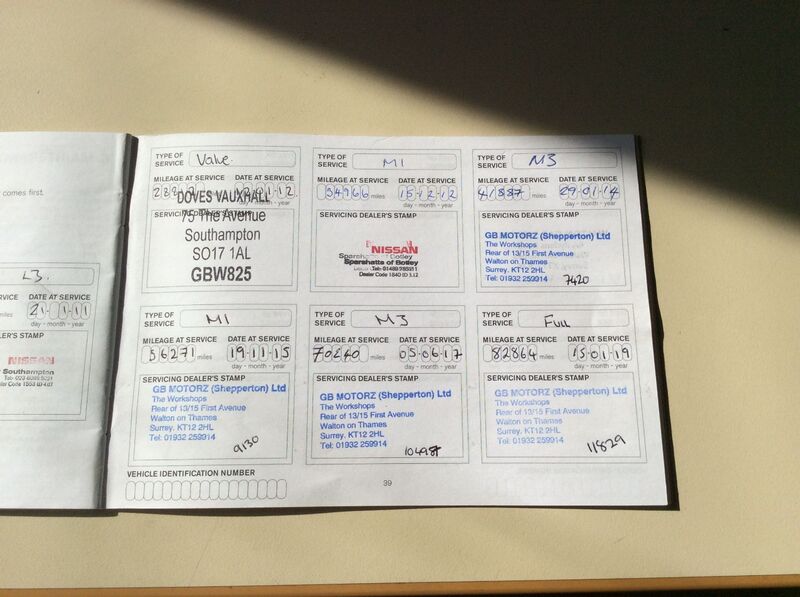 comes first.
L3.
DATE AT SERVICE
21 11
day - month - year
STAMP
NISSAN
Southampton
TYPE OF SERVICE Value.
MILEAGE AT SERVICE DATE AT SERVICE
01.12
DOVES VAUXHALL
75 The Avenue
Southampton
SO17 1AL
GBW825
TYPE OF SERVICE M1
MILEAGE AT SERVICE DATE AT SERVICE
34966 miles 15.12.12
day - month - year
SERVICING DEALER'S STAMP
NISSAN
Sparshatts of Botley
Dealer Code 1840 ID 3.12
TYPE OF SERVICE M3
MILEAGE AT SERVICE DATE AT SERVICE
41887 miles 29.01.14
day - month - year
SERVICING DEALER'S STAMP
GB MOTORZ (Shepperton) Ltd
The Workshops
Rear of 13/15 First Avenue
Walton on Thames
Surrey. KT12 2HL
Tel: 01932 259914
7420
TYPE OF SERVICE M1
MILEAGE AT SERVICE DATE AT SERVICE
56271 miles 19.11.15
day - month - year
SERVICING DEALER'S STAMP
GB MOTORZ (Shepperton) Ltd
The Workshops
Rear of 13/15 First Avenue
Walton on Thames
Surrey. KT12 2HL
Tel: 01932 259914
9130
TYPE OF SERVICE M3
MILEAGE AT SERVICE DATE AT SERVICE
70240 miles 05.06.17
day - month - year
SERVICING DEALER'S STAMP
GB MOTORZ (Shepperton) Ltd
The Workshops
Rear of 13/15 First Avenue
Walton on Thames
Surrey. KT12 2HL
Tel: 01932 259914
10498
TYPE OF SERVICE Full
MILEAGE AT SERVICE DATE AT SERVICE
82864 miles 15.01.19
day - month - year
SERVICING DEALER'S STAMP
GB MOTORZ (Shepperton) Ltd
The Workshops
Rear of 13/15 First Avenue
Walton on Thames
Surrey. KT12 2HL
Tel: 01932 259914
11829
VEHICLE IDENTIFICATION NUMBER
39